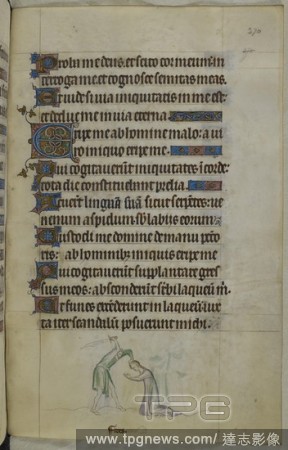 270
Proba me deus et scito cor meum in
terroga me et cognosce semitas meas.
Et vide si via iniquitatis in me est
et deduc me in via eterna.
Eripe me ab homine malo: a vi
ro iniquo eripe me.
Qui cogitaverūt iniquitates ī corde:
tota die constituebant prelia.
Acuerūt linguā suā sicut serpētes: ve
nenum aspidum sb labiis eorum
Custodi me domine de manu pctō
ris: ab hominibȝ iniquis eripe me
Qui cogitaverūt supplantare gres
sus meos: absconderūt sr̄bi laqueū m̄
Et funes extēderunt in laqueū: iux
ta iter scandalū posuerunt michi
TPG
www.tpgnews.com/達志影像